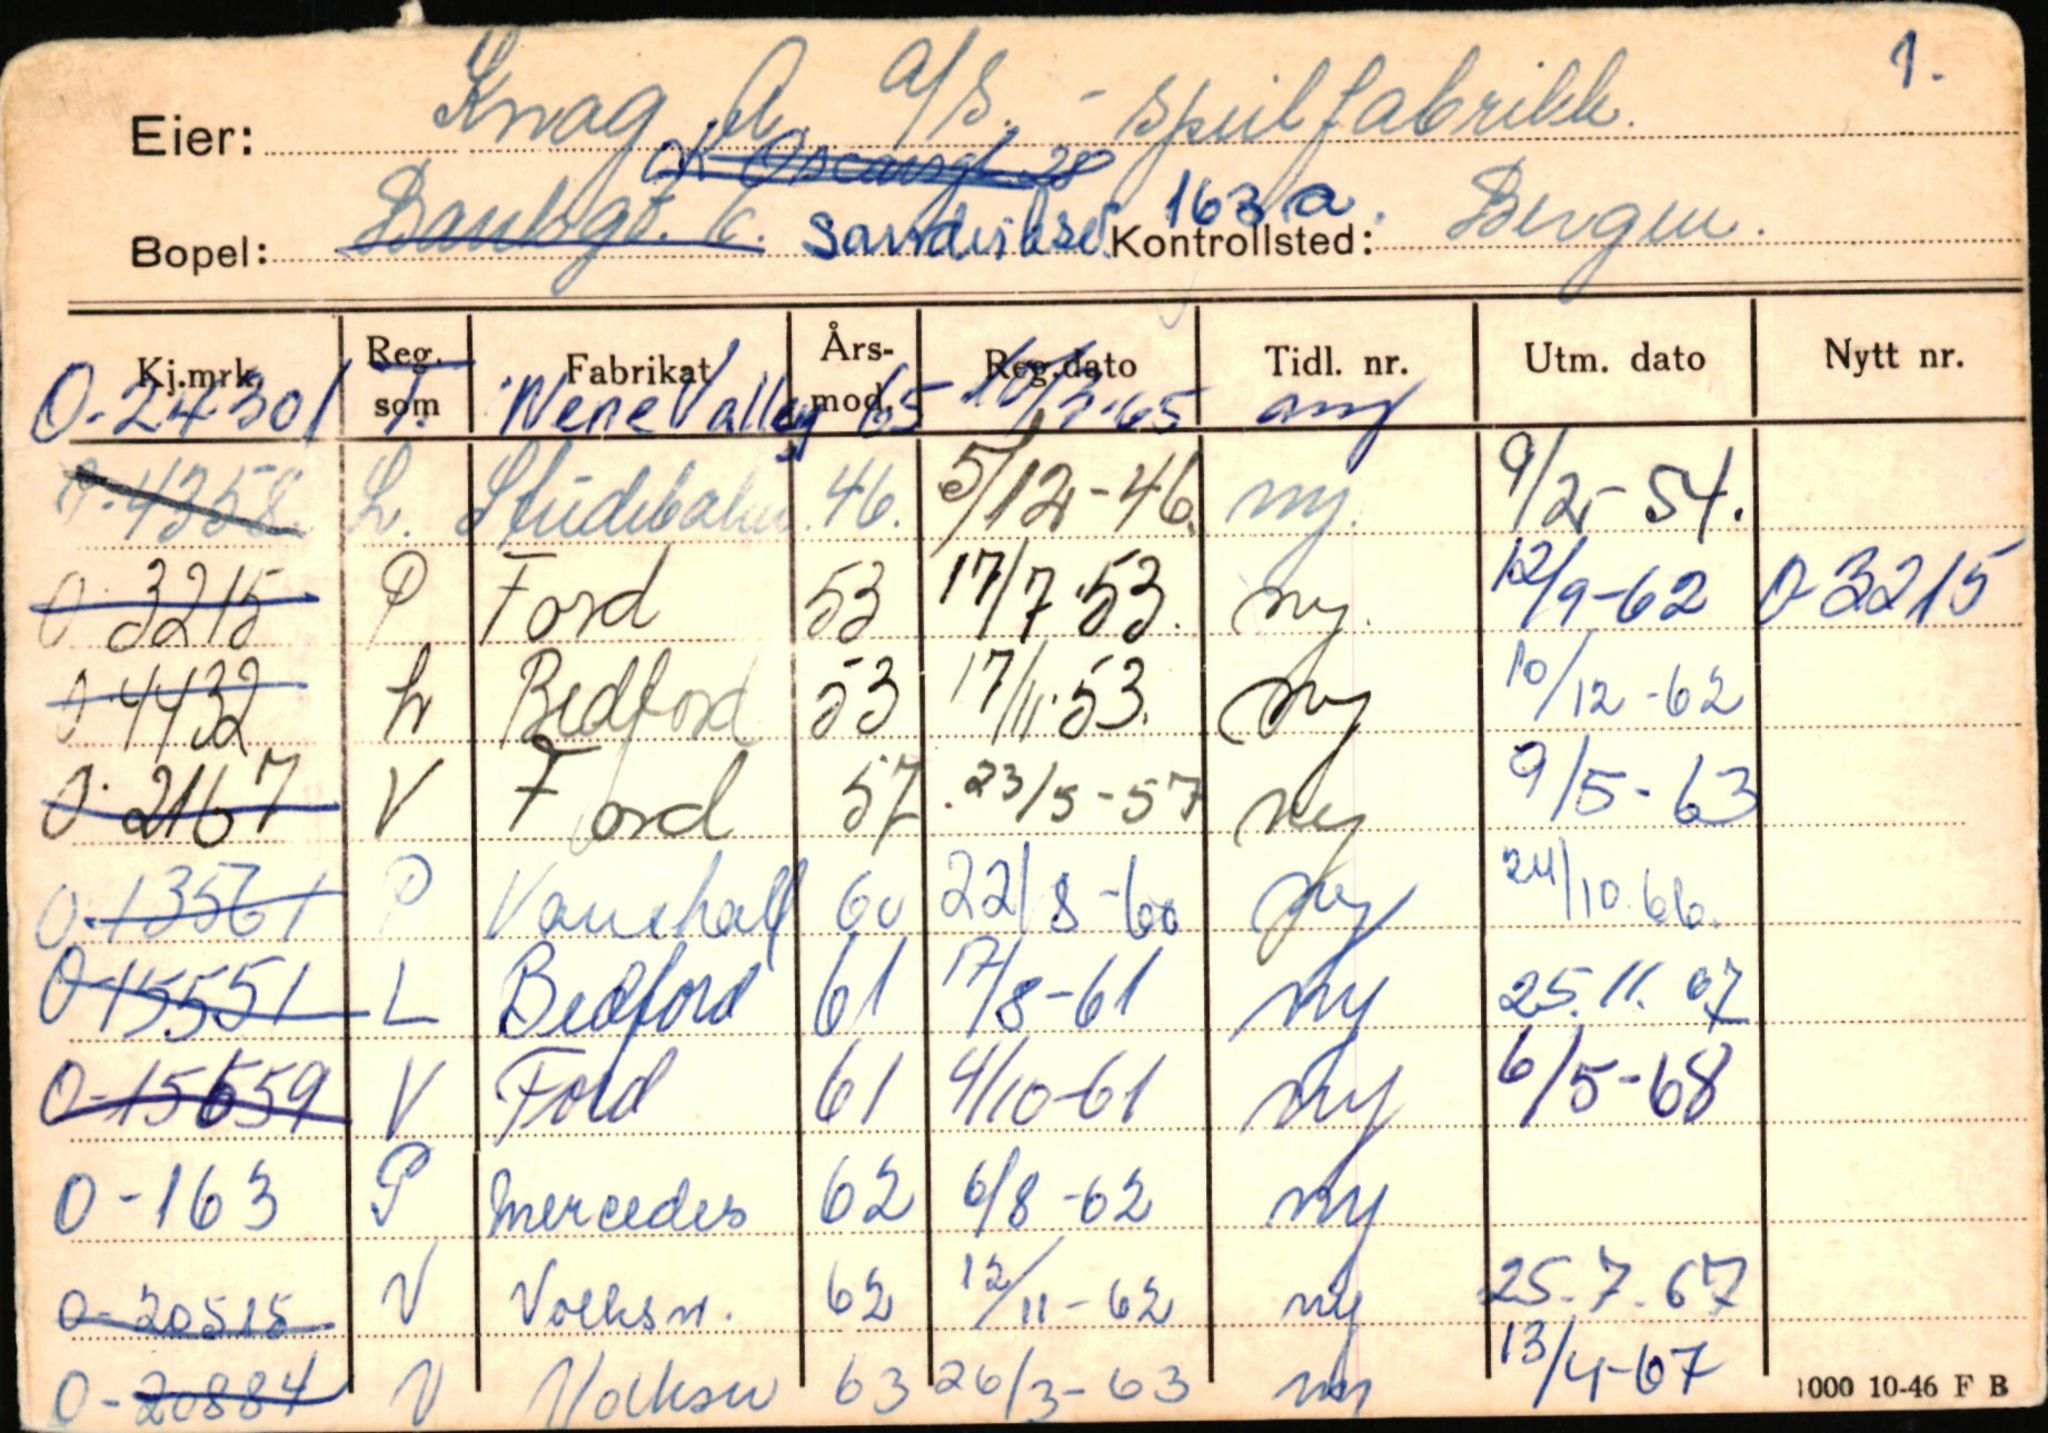 1.
Eier: Knag A. A/S. - Speilfabrikk.
K. Oscarsgt 28
Bopel: Bankgt. 6. Sandviksv. 163 a. Kontrollsted: Bergen.
Kj.mrk. Reg. som Fabrikat Års-mod. Reg.dato Tidl. nr. Utm. dato Nytt nr.
O-24301 T. Nene Valley 65 10/3-65 ny
O-4358 L. Studebaker 46. 5/12-46. ny. 9/2-54.
O-3215 P Ford 53 17/7 53. ny. 12/9-62 O-3215
O-4432 L Bedford 53 17/11-53. ny 10/12-62
O-2167 V Ford 57 23/5-57 ny 9/5-63
O-13561 P Vauxhall 60 22/8-60 ny 24/10.66.
O-15551 L Bedford 61 17/8-61 ny 25.11.67
O-15659 V Ford 61 4/10-61 ny 6/5-68
O-163 P Mercedes 62 6/8-62 ny
O-20515 V Volksw. 62 12/11-62 ny 25.7.67
O-20884 V Volksw 63 26/3-63 ny 13/4-67
1000 10-46 F B